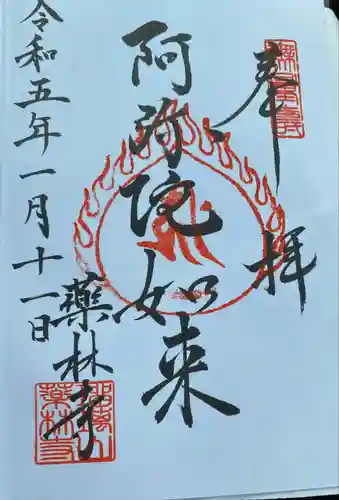 奉拝
阿弥陀如来
令和五年一月十一日
薬林寺